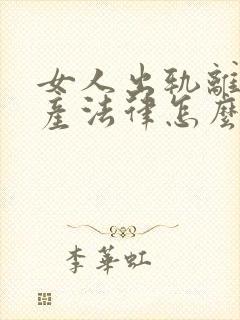 女人出轨離
產法律怎麼
李華虹